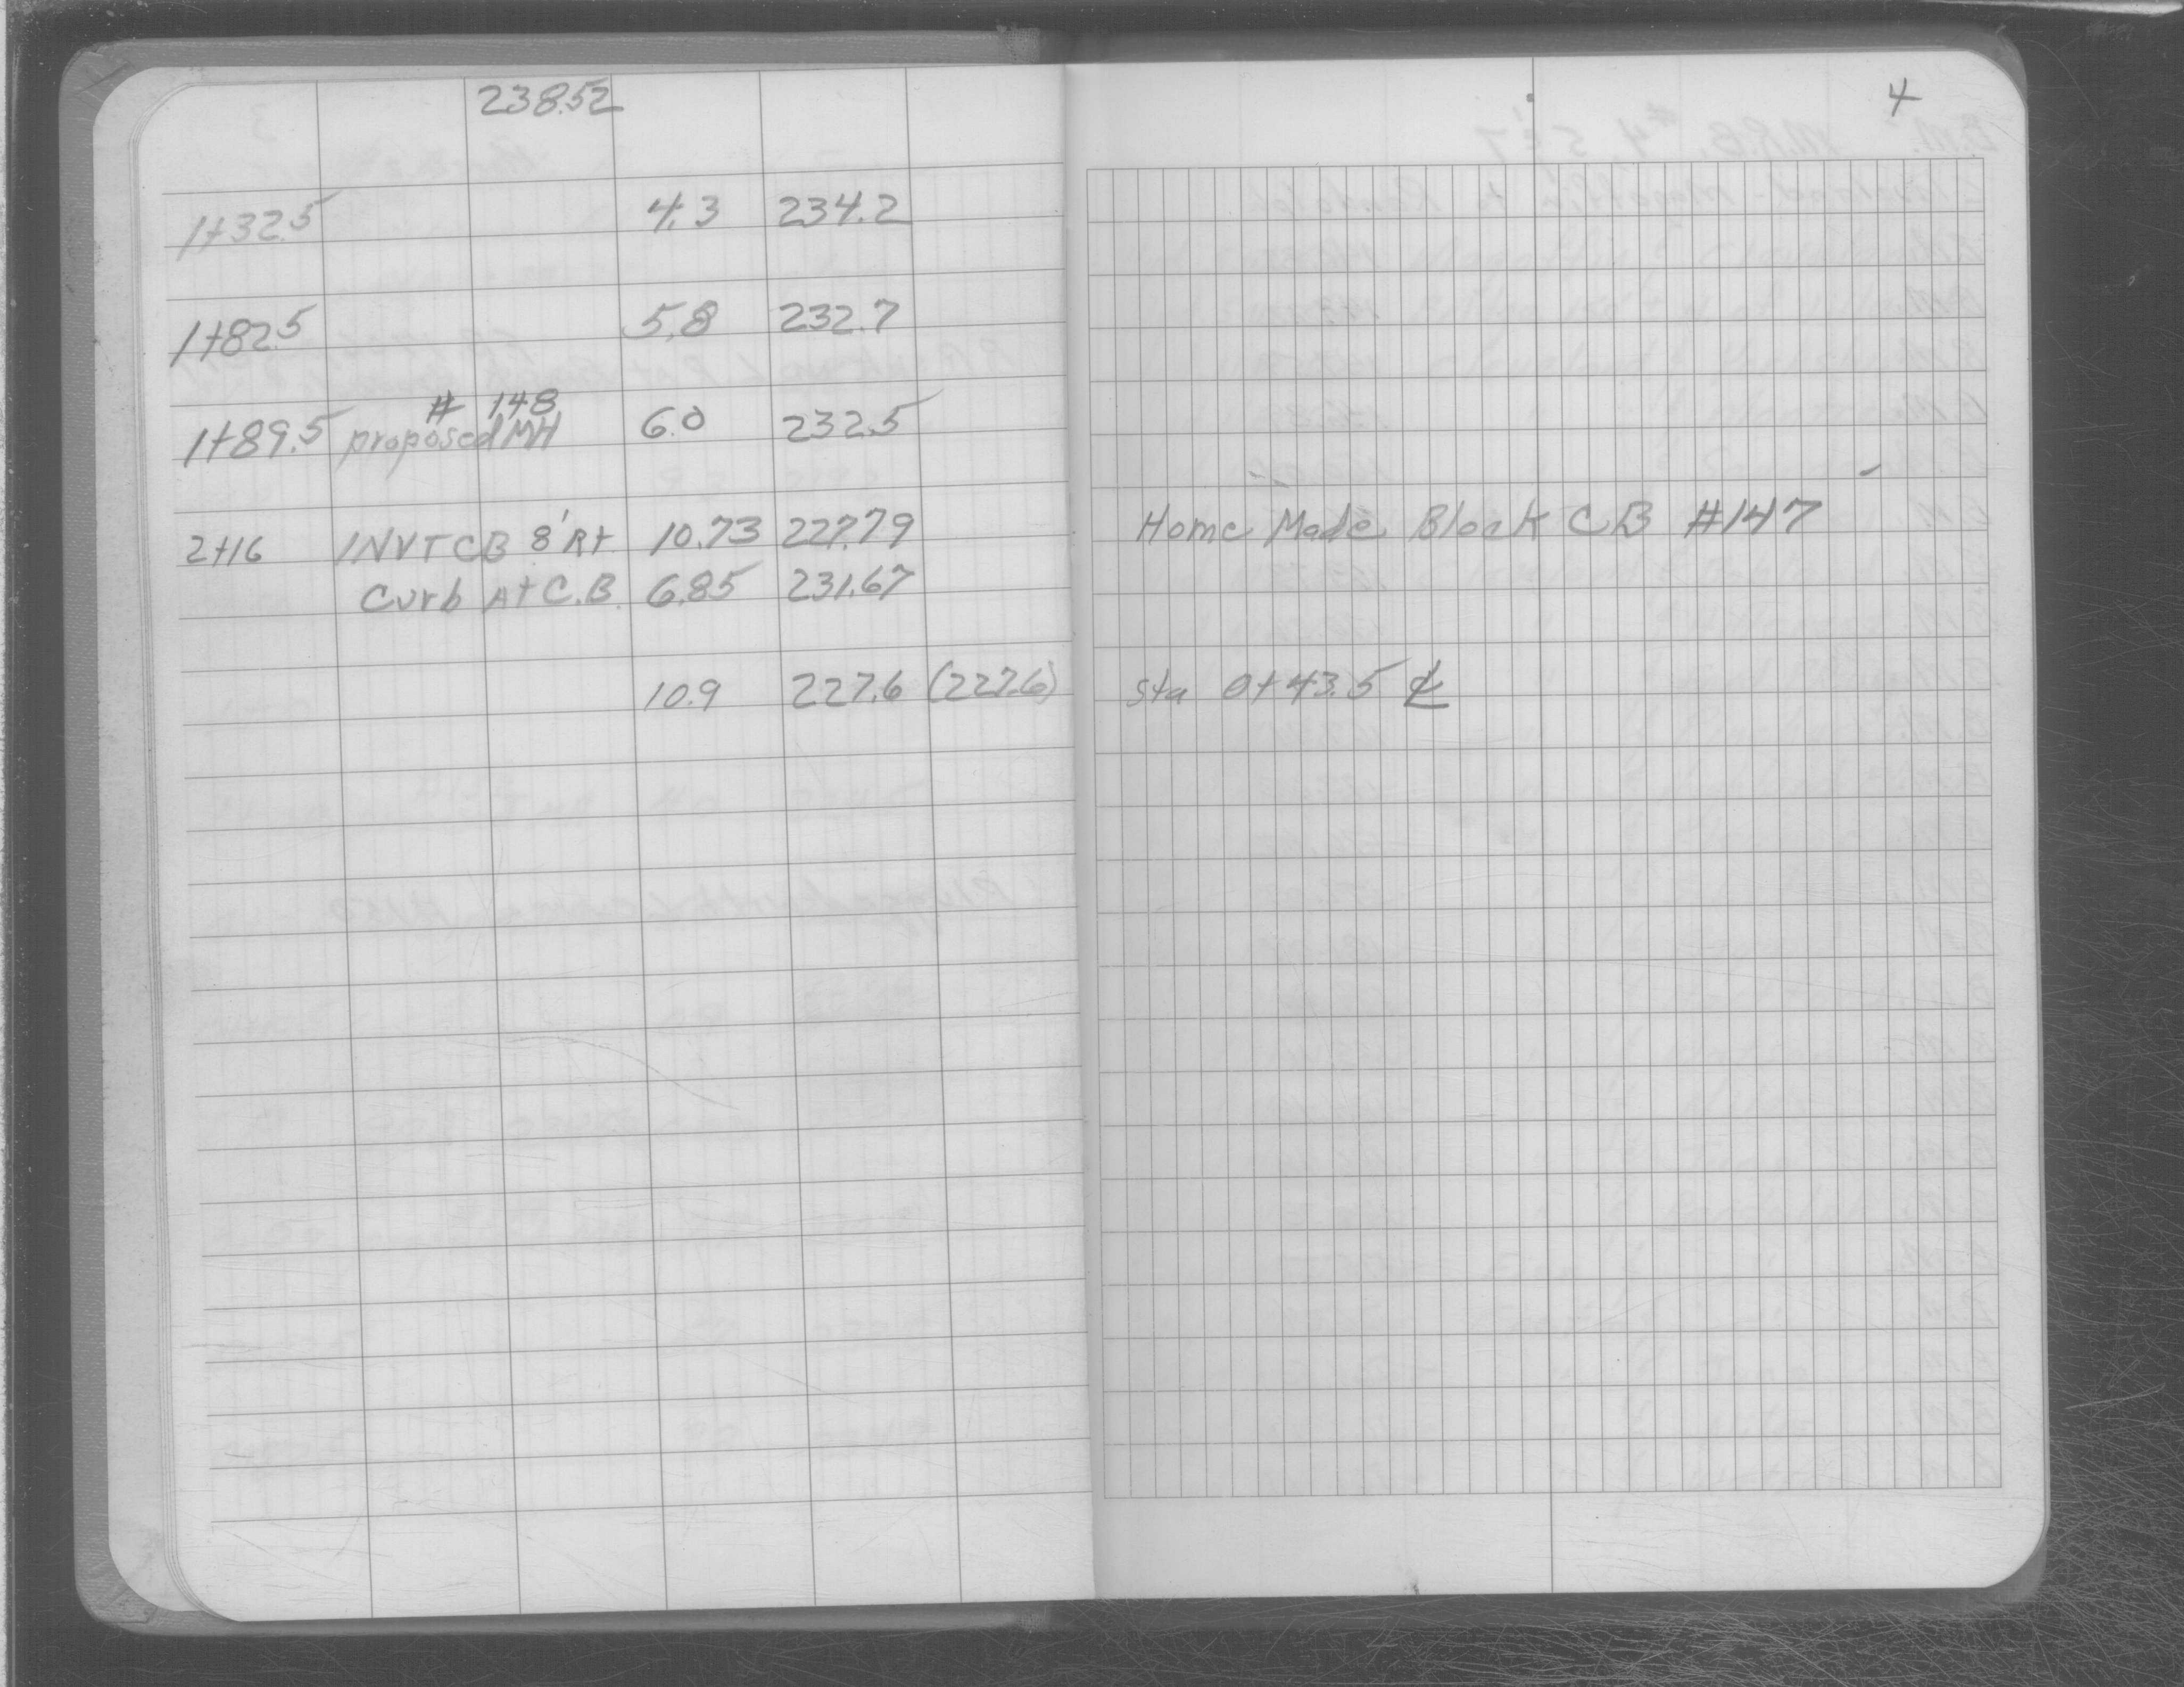 238.52
4
1+32.5 4.3 234.2
1+82.5 5.8 232.7
# 148
1+89.5 proposed MH 6.0 232.5
2+16 INVT CB 8' Rt. 10.73 227.79 Home Made Block CB #147
Curb At C.B. 6.85 231.67
10.9 227.6 (227.6) Sta 0+43.5 ℄